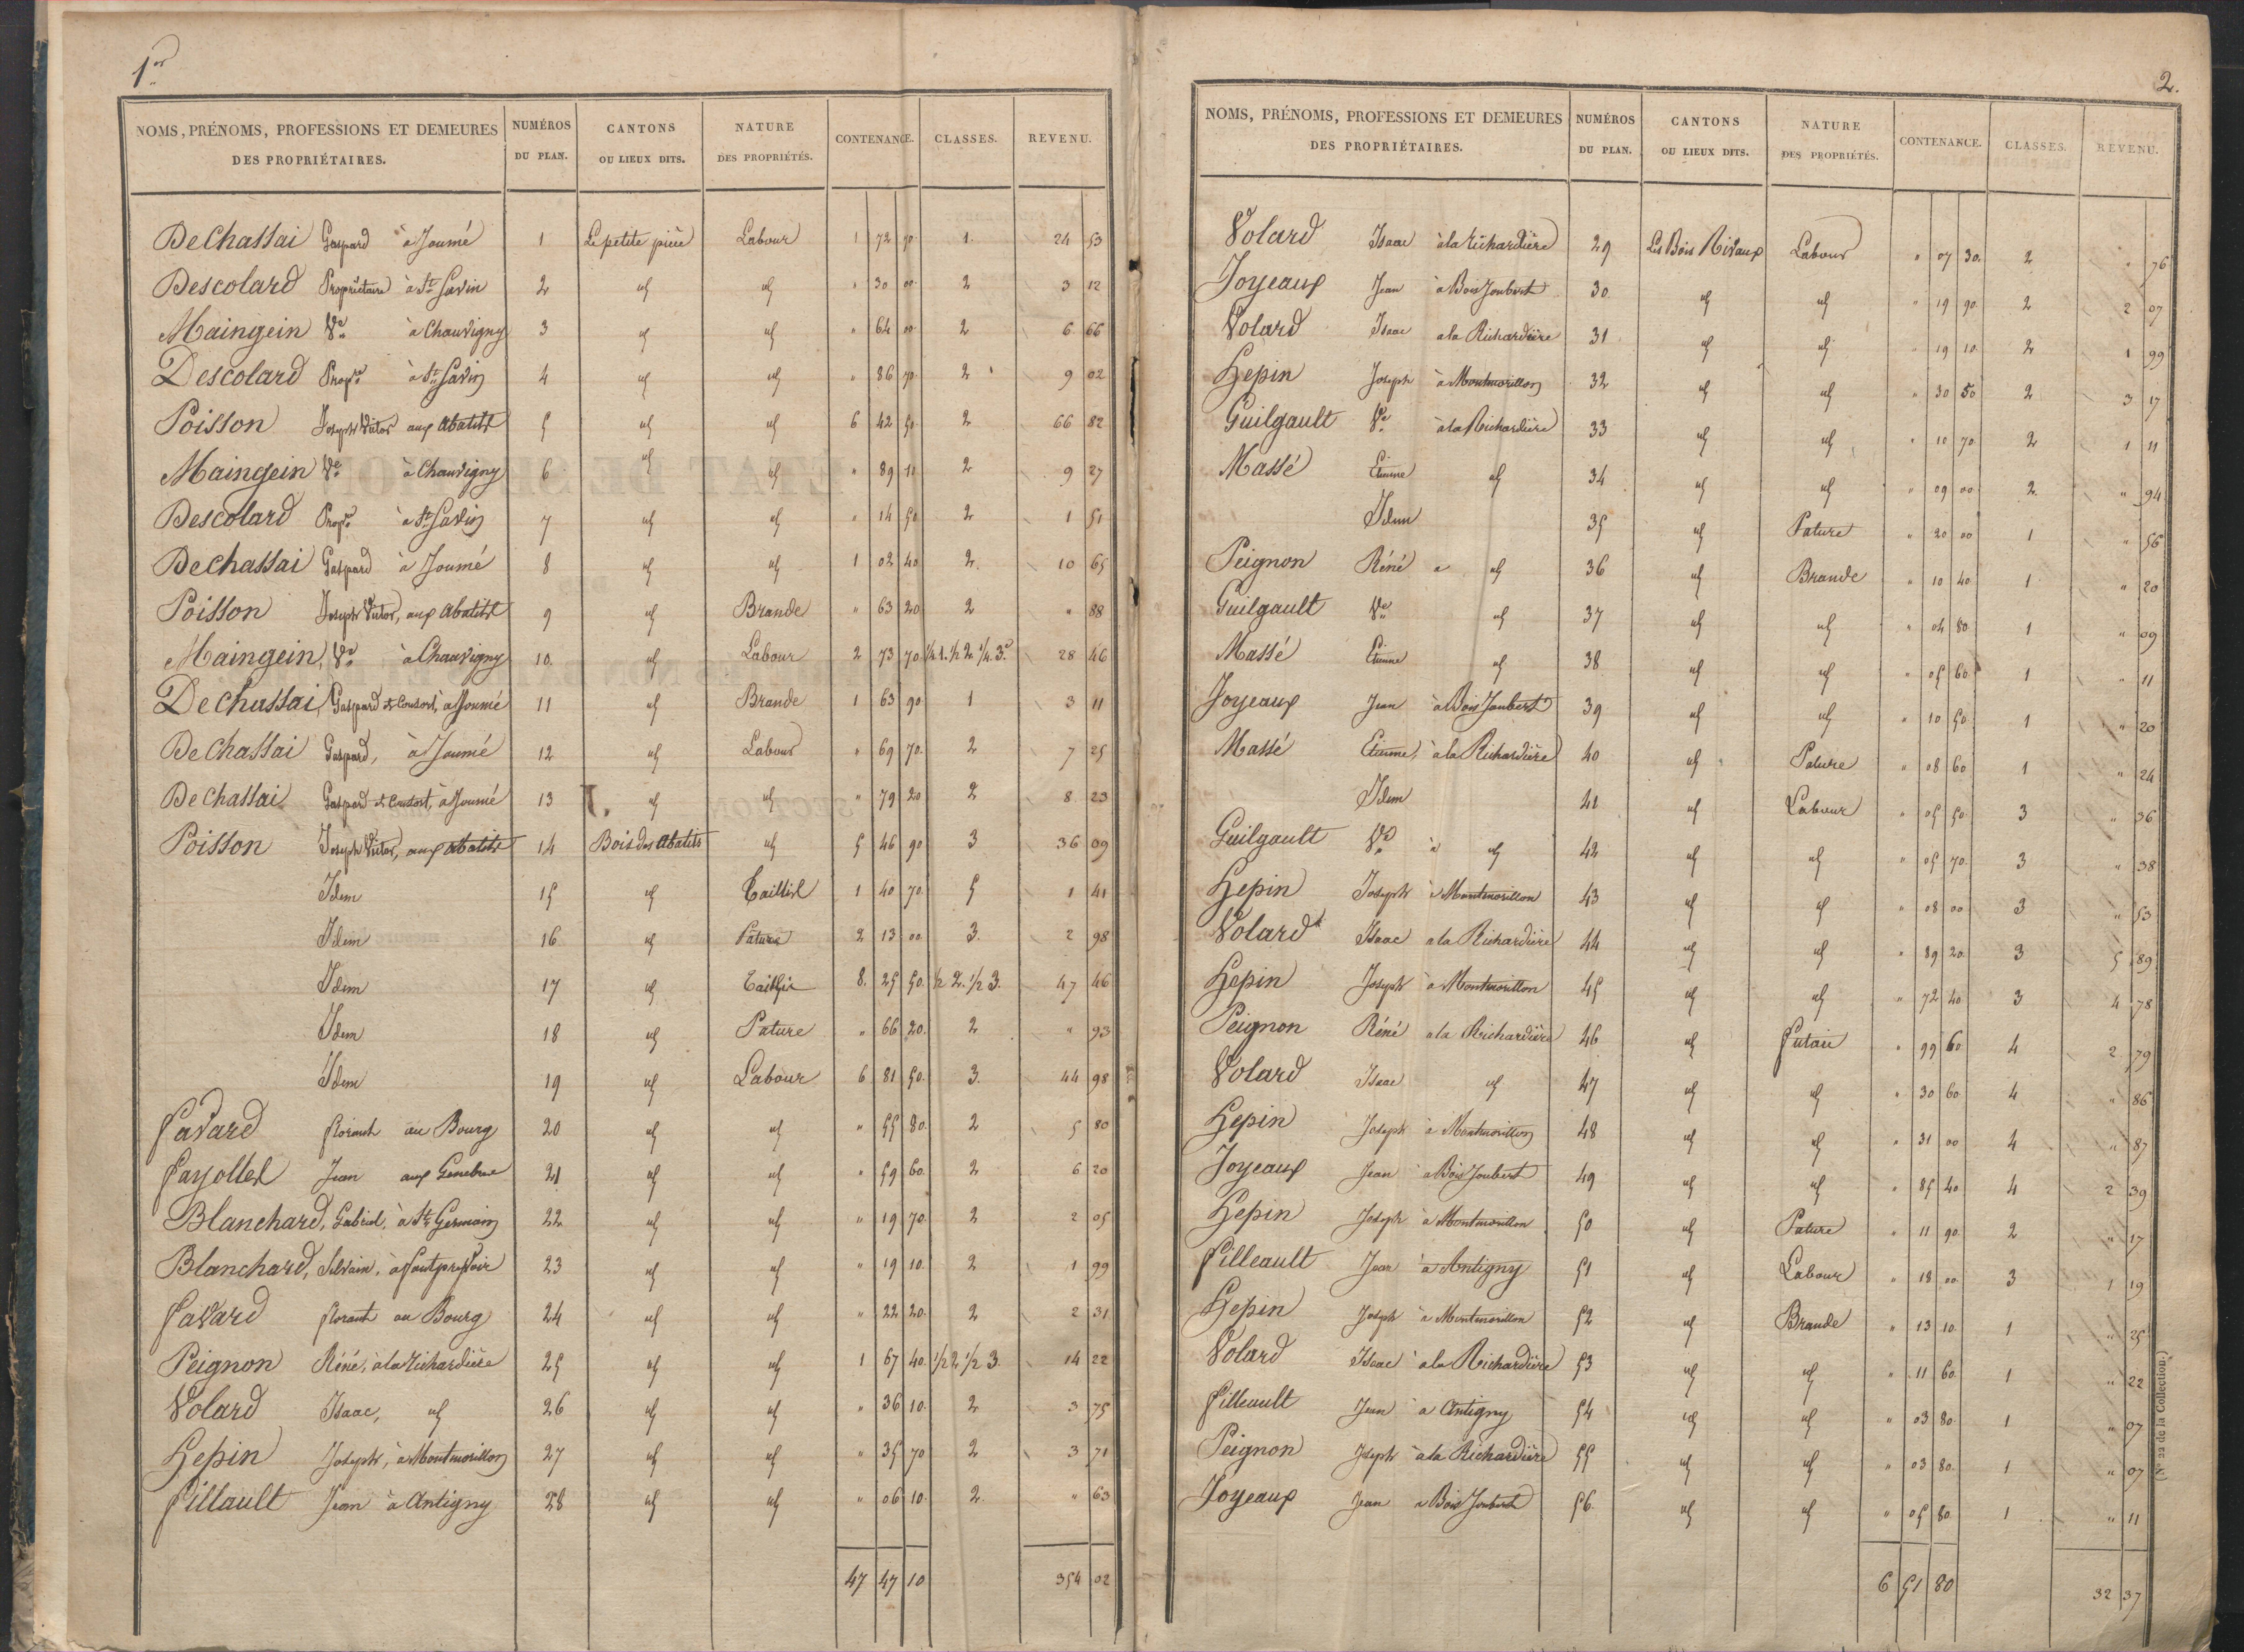 1er
NOMS, PRÉNOMS, PROFESSIONS ET DEMEURES DES PROPRIÉTAIRES. NUMÉROS DU PLAN. CANTONS OU LIEUX DITS. NATURE DES PROPRIÉTÉS. CONTENANCE. CLASSES. REVENU.
De Chassai Gaspard à Joumé 1 La petite pièce Labour 1 72 90 1. 24 53
Descolard Propriétaire à St Savin 2 id id " 30 00 2 3 12
Maingein Ve à Chauvigny 3 id id " 64 00 2 6 66
Descolard Propre à St Savin 4 id id " 86 70 2 9 02
Poisson Joseph Victor aux Abatits 5 id id 6 42 50 2 66 82
Maingein Ve à Chauvigny 6 id id " 89 10 2 9 27
Descolard Propre à St Savin 7 id id " 14 50 2 1 51
De Chassai Gaspard à Joumé 8 id id 1 02 40 2. 10 65
Poisson Joseph Victor, aux Abatits 9 id Brande " 63 20 2 " 88
Maingein, Ve à Chauvigny 10. id Labour 2 73 70 1/4 1. 1/2 2 1/4 3e 28 46
De Chassai, Gaspard et Consort, à Joumé 11 id Brande 1 63 90 1 3 11
De Chassai Gaspard, à Joumé 12 id Labour " 69 70 2 7 25
De Chassai Gaspard et Consort, à Joumé 13 id id " 79 20 2 8 23
Poisson Joseph Victor, aux Abatits 14 Bois des Abatits id 5 46 90 3 36 09
Idem 15 id Taillis 1 40 70 5 1 41
Idem 16 id Pature 2 13 00 3. 2 98
Idem 17 id Taillis 8. 25 50 1/2 2. 1/2 3. 47 46
Idem 18 id Pature " 66 20 2 " 93
Idem 19 id Labour 6 81 50 3. 44 98
Favard florant au Bourg 20 id id " 55 80 2 5 80
Fayolles Jean aux 21 id id " 59 60 2 6 20
Blanchard, Gabriel, à St Germain 22 id id " 19 70 2 2 05
Blanchard, Silvain, à 23 id id " 19 10 2 1 99
Favard florant au Bourg 24 id id " 22 20 2 2 31
Peignon Réné, à la Richardière 25 id id 1 67 40 1/2 2 1/2 3. 14 22
Volard Isaac, id 26 id id " 36 10 2 3 75
Hepin Joseph, à Montmorillon 27 id id " 35 70 2 3 71
Fillault Jean à Antigny 28 id id " 06 10 2. " 63
47 47 10 354 02
2.
NOMS, PRÉNOMS, PROFESSIONS ET DEMEURES DES PROPRIÉTAIRES. NUMÉROS DU PLAN. CANTONS OU LIEUX DITS. NATURE DES PROPRIÉTÉS. CONTENANCE. CLASSES. REVENU.
Volard Isaac à la Richardière 29 Les Bois Rivaux Labour " 07 30 2 " 76
Joyeaux Jean à Bois Joubert 30 id id " 19 90 2 2 07
Volard Isaac à la Richardière 31 id id " 19 10 2 1 99
Hepin Joseph à Montmorillon 32 id id " 30 50 2 3 17
Guilgault Ve à la Richardière 33 id id " 10 70 2 1 11
Massé Etienne id 34 id id " 09 00 2 " 94
Idem 35 id Pature " 20 00 1 " 56
Peignon Réné à id 36 id Brande " 10 40 1 " 20
Guilgault Ve id 37 id id " 04 80 1 " 09
Massé Etienne id 38 id id " 05 60 1 " 11
Joyeaux Jean à Bois Joubert 39 id id " 10 50 1 " 20
Massé Etienne, à la Richardière 40 id Pature " 08 60 1 " 24
Idem 41 id Labour " 05 50 3 " 36
Guilgault Ve à id 42 id id " 05 70 3 " 38
Hepin Joseph à Montmorillon 43 id id " 08 00 3 " 53
Volard Isaac à la Richardière 44 id id " 89 20 3 5 89
Hepin Joseph à Montmorillon 45 id id " 72 40 3 4 78
Peignon Réné à la Richardière 46 id Futaie " 99 60 4 2 79
Volard Isaac id 47 id id " 30 60 4 " 86
Hepin Joseph à Montmorillon 48 id id " 31 00 4 " 87
Joyeaux Jean à Bois Joubert 49 id id " 85 40 4 2 39
Hepin Joseph à Montmorillon 50 id Pature " 11 90 2 " 17
Filleault Jean à Antigny 51 id Labour " 18 00 3 1 19
Hepin Joseph à Montmorillon 52 id Brande " 13 10 1 " 25
Volard Isaac à la Richardière 53 id id " 11 60 1 " 22
Filleault Jean à Antigny 54 id id " 03 80 1 " 07
Peignon Joseph à la Richardière 55 id id " 03 80 1 " 07
Joyeaux Jean à Bois Joubert 56 id id " 05 80 1 " 11
6 51 80 32 37
(No 22 de la Collection.)